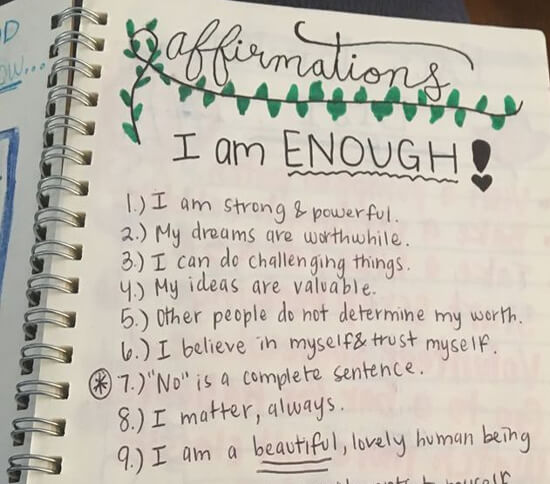 D
OW...
affirmations
I am ENOUGH!
1.) I am strong & powerful.
2.) My dreams are worthwhile.
3.) I can do challenging things.
4.) My ideas are valuable.
5.) Other people do not determine my worth.
6.) I believe in myself & trust myself.
7.) "No" is a complete sentence.
8.) I matter, always.
9.) I am a beautiful, lovely human being
to myself